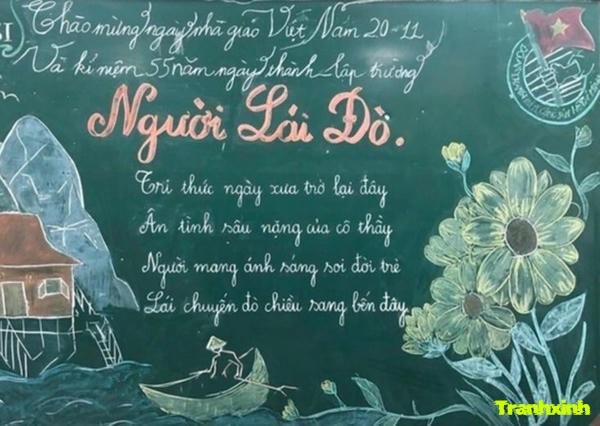 Chào mừng ngày nhà giáo Việt Nam 20-11
Và kỉ niệm 55 năm ngày thành lập trường
Người Lái Đò.
Tri thức ngày xưa trở lại đây
Ân tình sâu nặng của cô thầy
Người mang ánh sáng soi đời trẻ
Lái chuyến đò chiều sang bến đây
Tranhxinh